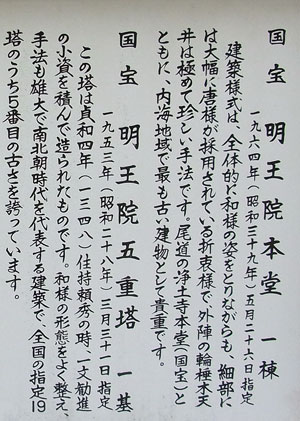 国宝 明王院本堂 一棟
一九六四年(昭和三十九年)五月二十六日指定
建築様式は、全体的に和様の姿をとりながらも、細部に
は大幅に唐様が採用されている折衷様で、外陣の輪棰天
井は極めて珍しい手法です。尾道の浄土寺本堂(国宝)と
ともに、内海地域で最も古い建物として貴重です。
国宝 明王院五重塔 一基
一九五三年(昭和二十八年)三月三十一日指定
この塔は貞和四年(一三四八)住持頼秀の時、一文勧進
の小資を積んで造られたものです。和様の形態をよく整え、
手法も雄大で南北朝時代を代表する建築で、全国の指定19
塔のうち5番目の古さを誇っています。